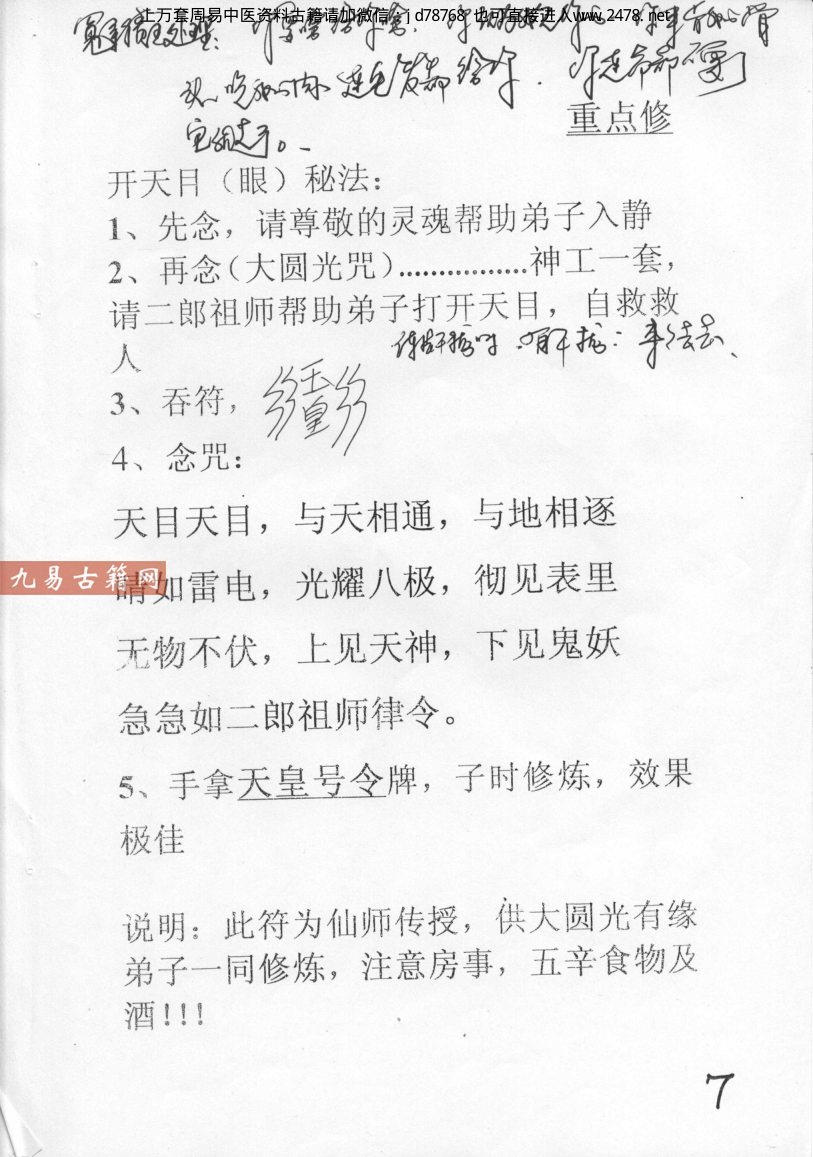 上万套周易中医资料古籍请加微信：j d78768 也可直接进入www.2478.net
重点修
开天目（眼）秘法：
1、先念，请尊敬的灵魂帮助弟子入静
2、再念（大圆光咒）................神工一套，
请二郎祖师帮助弟子打开天目，自救救
人
3、吞符，
玉皇
4、念咒：
天目天目，与天相通，与地相逐
九易古籍网
睛如雷电，光耀八极，彻见表里
无物不伏，上见天神，下见鬼妖
急急如二郎祖师律令。
5、手拿天皇号令牌，子时修炼，效果
极佳
说明：此符为仙师传授，供大圆光有缘
弟子一同修炼，注意房事，五辛食物及
酒!!!
7